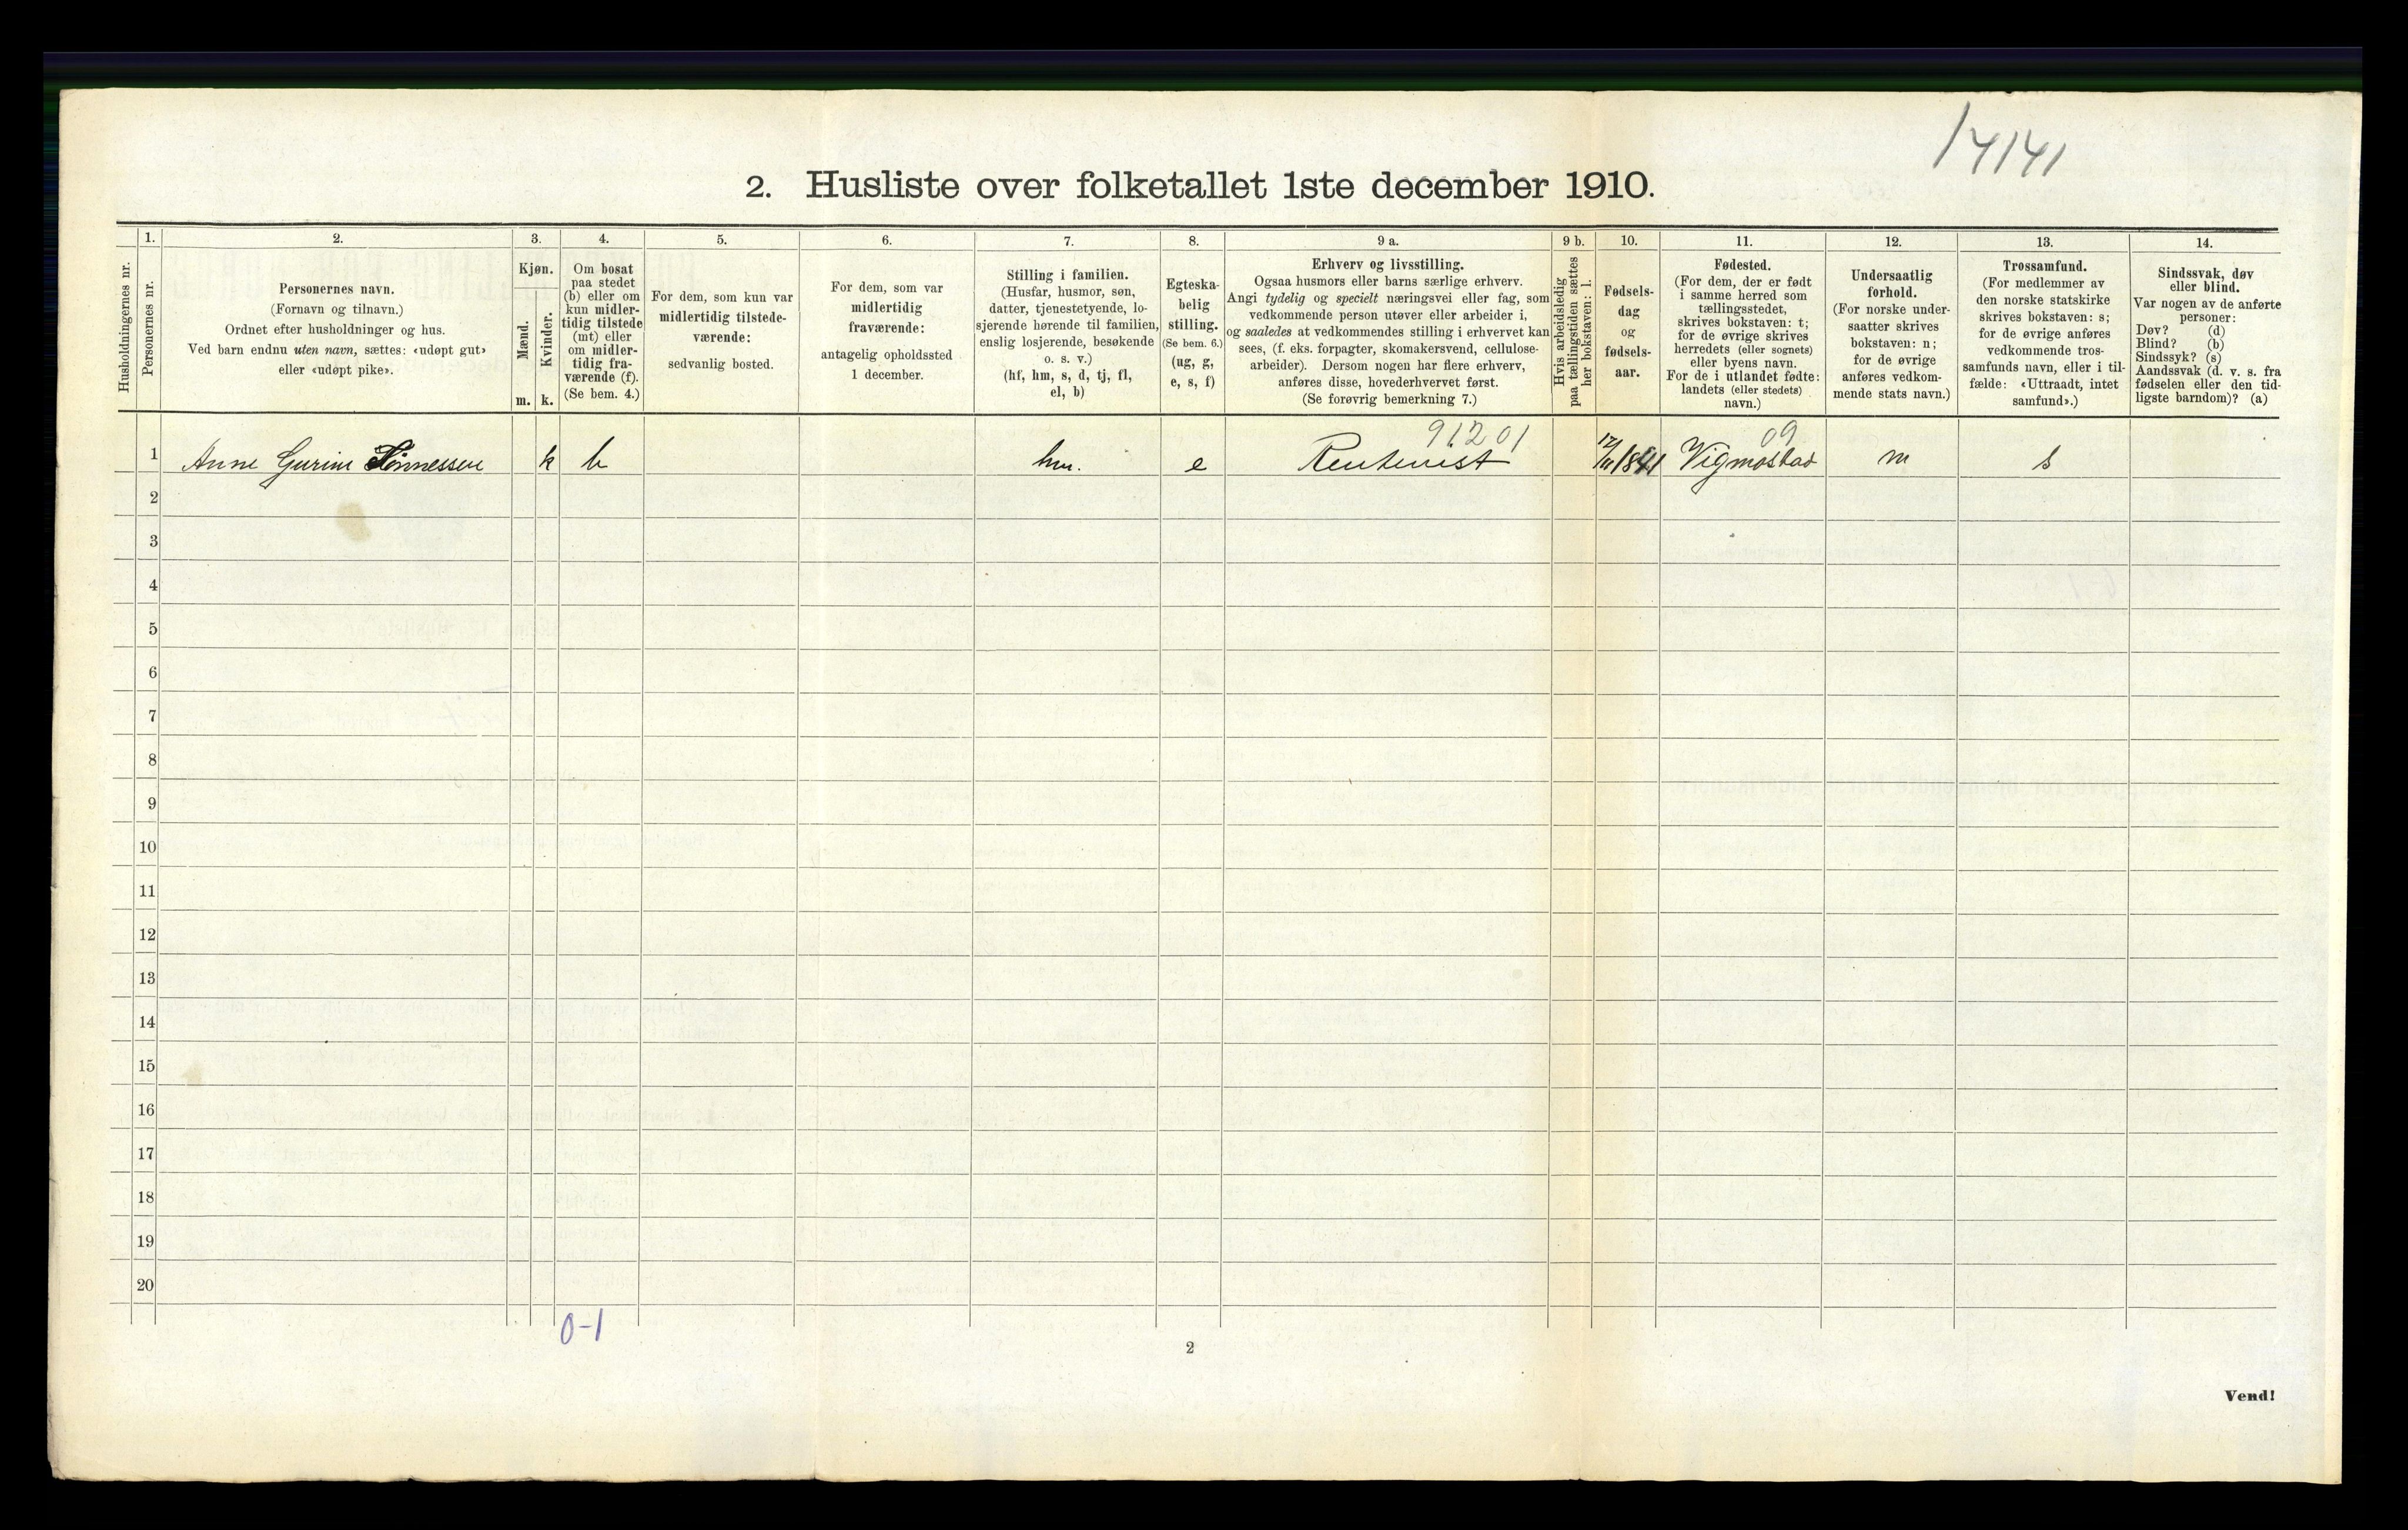 14141
2. Husliste over folketallet 1ste december 1910.
Husholdningernes nr.
1.
Personernes nr.
2.
Personernes navn.
(Fornavn og tilnavn.)
Ordnet efter husholdninger og hus.
Ved barn endnu uten navn, sættes: «udøpt gut»
eller «udøpt pike».
3.
Kjøn.
Mænd.
Kvinder.
m. k.
4.
Om bosat
paa stedet
(b) eller om
kun midler-
tidig tilstede
(mt) eller
om midler-
tidig fra-
værende (f).
(Se bem. 4.)
5.
For dem, som kun var
midlertidig tilstede-
værende:
sedvanlig bosted.
6.
For dem, som var
midlertidig
fraværende:
antagelig opholdssted
1 december.
7.
Stilling i familien.
(Husfar, husmor, søn,
datter, tjenestetyende, lo-
sjerende hørende til familien,
enslig losjerende, besøkende
o. s. v.)
(hf, hm, s, d, tj, fl,
el, b)
8.
Egteska-
belig
stilling.
(Se bem. 6.)
(ug, g,
e, s, f)
9 a.
Erhverv og livsstilling.
Ogsaa husmors eller barns særlige erhverv.
Angi tydelig og specielt næringsvei eller fag, som
vedkommende person utøver eller arbeider i,
og saaledes at vedkommendes stilling i erhvervet kan
sees, (f. eks. forpagter, skomakersvend, cellulose-
arbeider). Dersom nogen har flere erhverv,
anføres disse, hovederhvervet først.
(Se forøvrig bemerkning 7.)
9 b.
Hvis arbeidsledig
paa tællingstiden sættes
her bokstaven: l.
10.
Fødsels-
dag
og
fødsels-
aar.
11.
Fødested.
(For dem, der er født
i samme herred som
tællingsstedet,
skrives bokstaven: t;
for de øvrige skrives
herredets (eller sognets)
eller byens navn.
For de i utlandet fødte:
landets (eller stedets)
navn.)
12.
Undersaatlig
forhold.
(For norske under-
saatter skrives
bokstaven: n;
for de øvrige
anføres vedkom-
mende stats navn.)
13.
Trossamfund.
(For medlemmer av
den norske statskirke
skrives bokstaven: s;
for de øvrige anføres
vedkommende tros-
samfunds navn, eller i til-
fælde: «Uttraadt, intet
samfund».)
14.
Sindssvak, døv
eller blind.
Var nogen av de anførte
personer:
Døv? (d)
Blind? (b)
Sindssyk? (s)
Aandssvak (d. v. s. fra
fødselen eller den tid-
ligste barndom)? (a)
91201 09
1 Anne Gurine Tønnessen k b hm. e Rentenist 12/11 1841 Vigmostad n s
2
3
4
5
6
7
8
9
10
11
12
13
14
15
16
17
18
19
20
0-1
2
Vend!